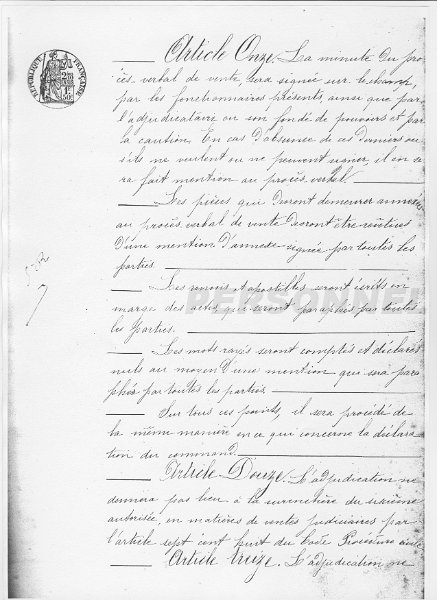 Article Onze. La minute du pro-
cès-verbal de vente, sera signée sur le champ,
par les fonctionnaires présents, ainsi que par
l'adjudicataire ou son fondé de pouvoirs et par
la caution. En cas d'absence de ces derniers ou
s'ils ne veulent ou ne peuvent signer, il en se-
ra fait mention au procès verbal.
Les pièces qui devront demeurer annexées
au procès verbal de vente devront être revêtues
d'une mention d'annexe signée par toutes les
parties.
Les renvois et apostilles seront écrits en
marge des actes, qui seront paraphés par toutes
les parties.
PERSONNEL
Les mots rayés seront comptés et déclarés
nuls au moyen d'une mention qui sera para-
phée par toutes les parties
Sur tous ces points, il sera procédé de
la même manière en ce qui concerne la déclara-
tion du command.
Article Douze. L'adjudication ne
donnera pas lieu à la surenchère du sixième
autorisée, en matières de ventes judiciaires par
l'article sept cent huit du Code Procédure civile
Article treize. L'adjudication ne
REPUBLIQUE FRANÇAISE